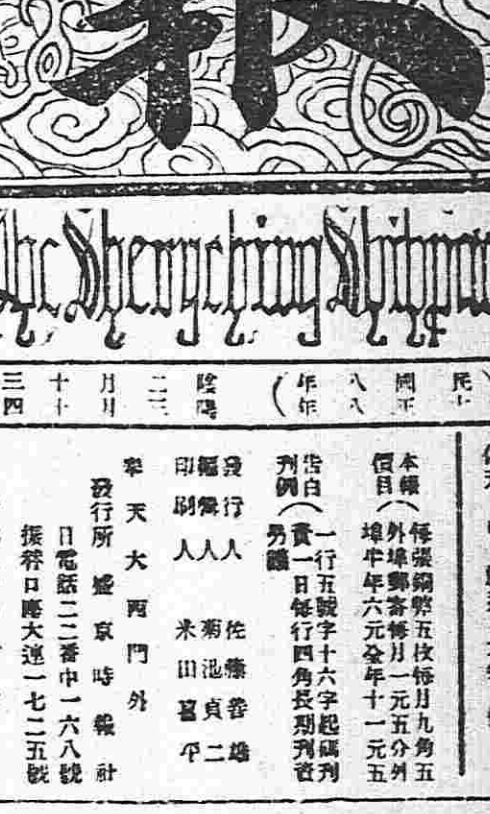 報
The Shengching Shihpao
本報
價目
每張銅幣五枚每月九角五
外埠郵寄每月一元五分外
埠半年六元全年十一元五
告白
刊例
一行五號字十六字起碼刊
費一日每行四角長期刊資
另議
發行人 佐藤善雄
編輯人 菊池貞二
印刷人 米田
奉天大西門外
發行所 盛京時報社
日電話二二番中一六八號
振替口座大連一七二五號